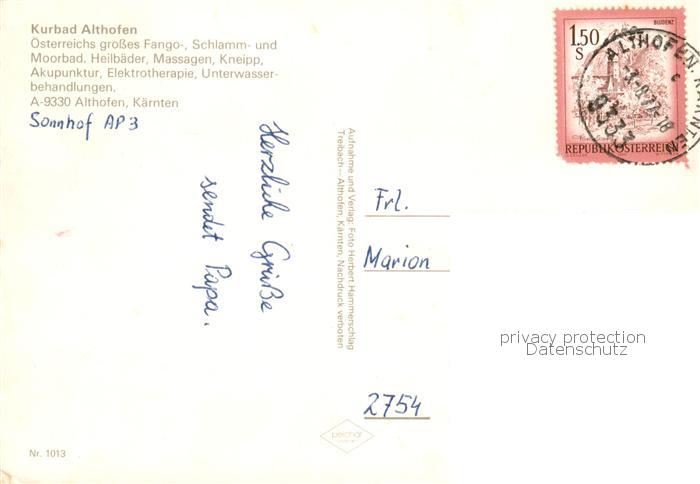 Kurbad Althofen
Österreichs großes Fango-, Schlamm- und
Moorbad. Heilbäder, Massagen, Kneipp,
Akupunktur, Elektrotherapie, Unterwasser-
behandlungen.
A-9330 Althofen, Kärnten
Sonnhof AP3
Herzliche Grüße
sendet Papa.
Aufnahme und Verlag: Foto Herbert Hammerschlag
Treibach—Althofen, Kärnten, Nachdruck verboten
Frl.
Marion
2754
Nr. 1013
BLUDENZ
1.50
S
REPUBLIK ÖSTERREICH
ALTHOFEN, KÄRNTEN
c
9333
privacy protection
Datenschutz